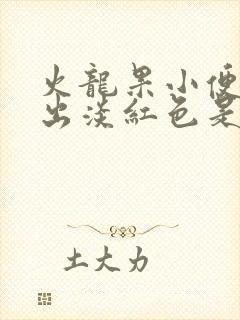 火龍果小便
出淡紅色是
土大力